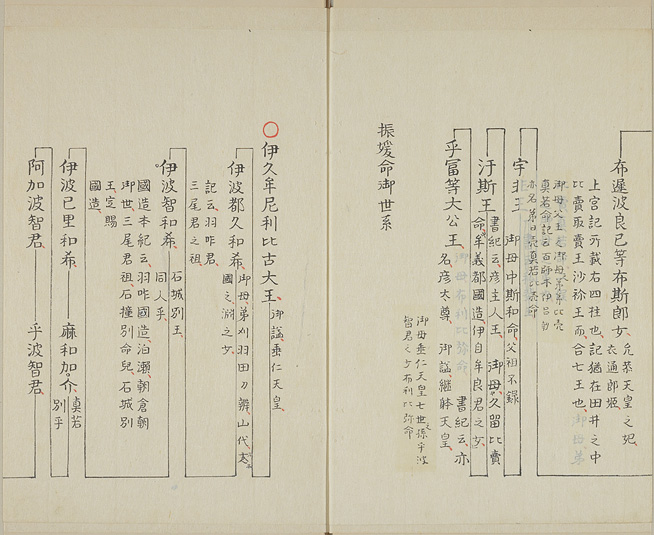 布遅波良己等布斯郎女 允恭天皇之妃
衣通郎姫
上宮記所載右四柱也、記猶在田井之中
比賣取賣王沙祢王而合七王也
宇非王 御母中斯和命、父祖不録
汙斯王 書紀云、彦主人王、御母、久留比賣
命、牟義都國造、伊自牟良君之女
乎富等大公王 書紀云、亦
名彦太尊、御諡、継体天皇、
御母垂仁天皇七世之孫乎波
智君之女布利比弥命
振媛命御世系
伊久牟尼利比古大王 御諡、垂仁天皇、
伊波都久和希 御母、弟刈羽田刀辨、山代大
國之淵之女
記云、羽咋君、
三尾君之祖
伊波智和希 石城別王
同人乎
國造本紀云、羽咋國造、泊瀬朝倉朝
御世、三尾君祖、石撞別命兒、石城別
王定賜
國造
伊波己里和希
麻和加介 真若
別乎
阿加波智君
乎波智君